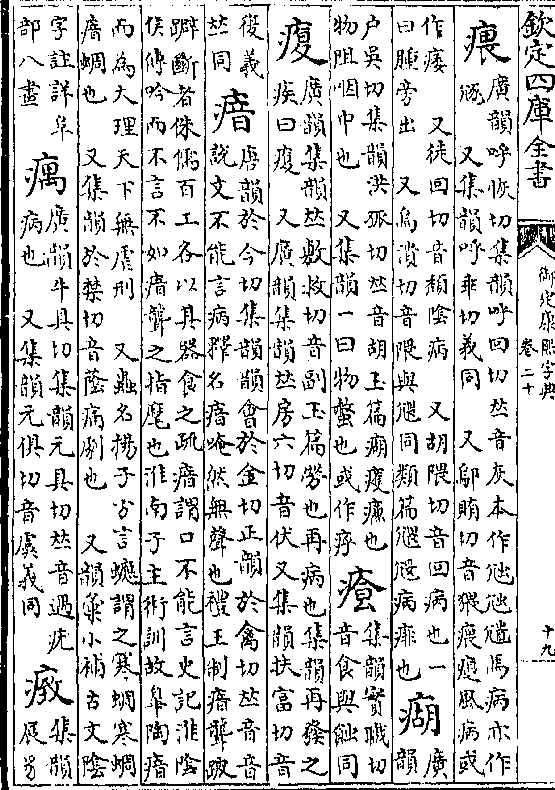 欽定四庫全書
御定康熙字典
卷二十
十九
㾯廣韻呼恢切集韻呼回切𠀤音灰本作㾯馬病亦作
又集韻呼乖切義同 又鄔賄切音猥㾯㿔風病或
作痿 又徒回切音頽陰病 又胡隈切音回病也一
曰腫旁出 又烏潰切音隈與同類篇病痱也 瘊廣韻
户吳切集韻洪孤切𠀤音胡玉篇瘊瘦癛也
物阻咽中也 又集韻一曰物螫也或作㾰 集韻實職切
音食與蝕同
㾺廣韻集韻𠀤敷救切音副玉篇勞也再病也集韻再發之
疾曰㾺 又廣韻集韻𠀤房六切音伏又集韻扶富切音
復義
𠀤同 瘖唐韻於今切集韻韻會於金切正韻於禽切𠀤音音
說文不能言病釋名瘖唵然無聲也禮王制瘖聾跛
躃斷者侏儒百工各以其器食之疏瘖謂口不能言史記淮陰
侯傳吟而不言不如瘖聾之指麾也淮南子主術訓故臯陶瘖
而為大理天下無虐刑 又蟲名揚子方言蟪謂之寒蜩寒蜩
瘖蜩也 又集韻於禁切音蔭病劇也 又韻彙小補古文陰
字註詳阜
部八畫 㾖廣韻牛具切集韻元具切𠀤音遇疣
病也 又集韻元俱切音虞義同 集韻